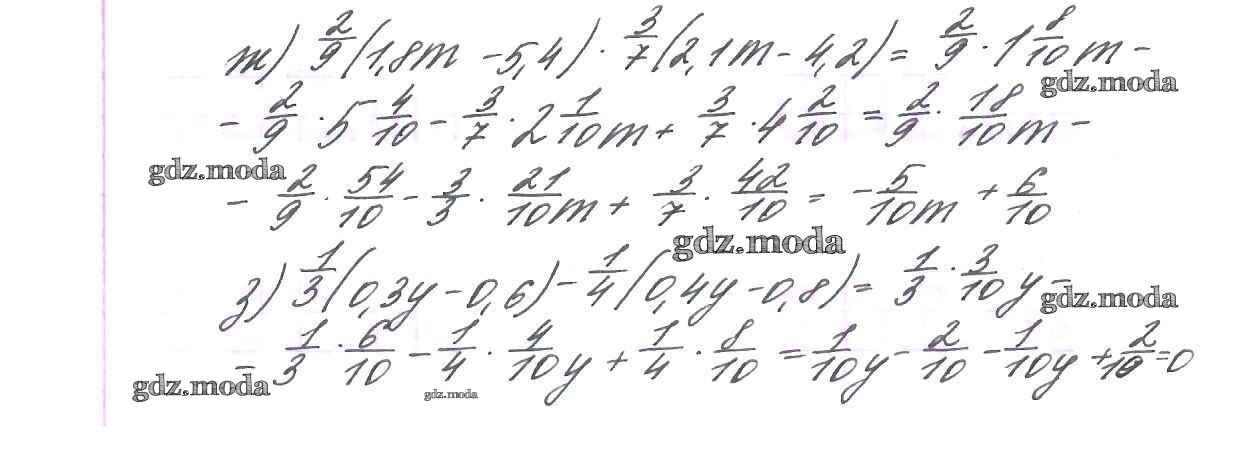 ж) 2/9(1,8m - 5,4) · 3/7(2,1m - 4,2) = 2/9 · 1 8/10 m -
gdz.moda
- 2/9 · 5 4/10 - 3/7 · 2 1/10 m + 3/7 · 4 2/10 = 2/9 · 18/10 m -
gdz.moda
- 2/9 · 54/10 - 3/3 · 21/10 m + 3/7 · 42/10 = - 5/10 m + 6/10
gdz.moda
з) 1/3(0,3y - 0,6) - 1/4(0,4y - 0,8) = 1/3 · 3/10 y -
gdz.moda
- 1/3 · 6/10 - 1/4 · 4/10 y + 1/4 · 8/10 = 1/10 y - 2/10 - 1/10 y + 2/10 = 0
gdz.moda
gdz.moda